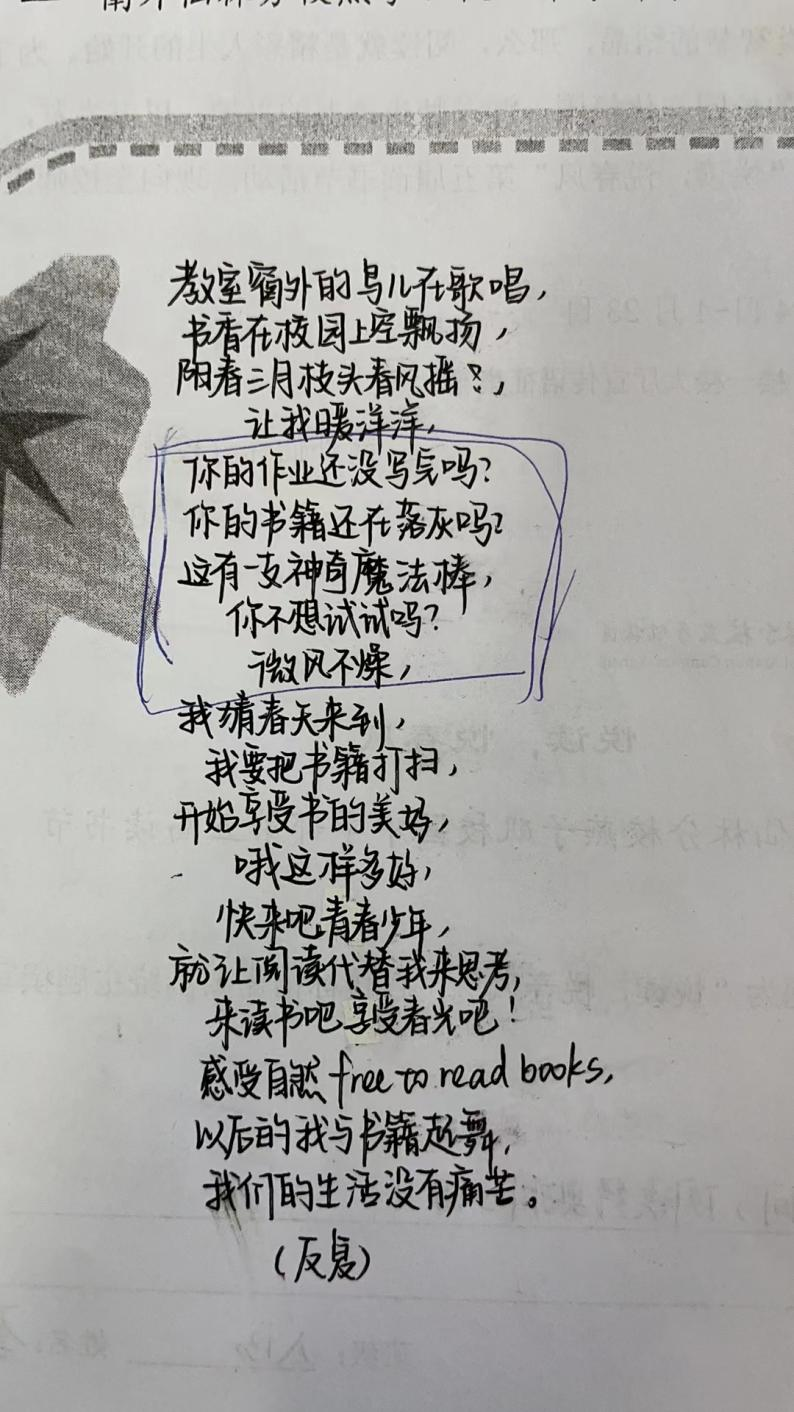 教室窗外的鸟儿在歌唱，
书香在校园上空飘扬，
阳春三月枝头春风摇，
让我暖洋洋，
你的作业还没写完吗？
你的书籍还在落灰吗？
这有一支神奇魔法棒，
你不想试试吗？
微风不燥，
我猜春天来到，
我要把书籍打扫，
开始享受书的美好，
哦这样多好，
快来吧青春少年，
就让阅读代替我来思考，
来读书吧享受春光吧！
感受自然 free to read books，
以后的我与书籍起舞，
我们的生活没有痛苦。
（反复）